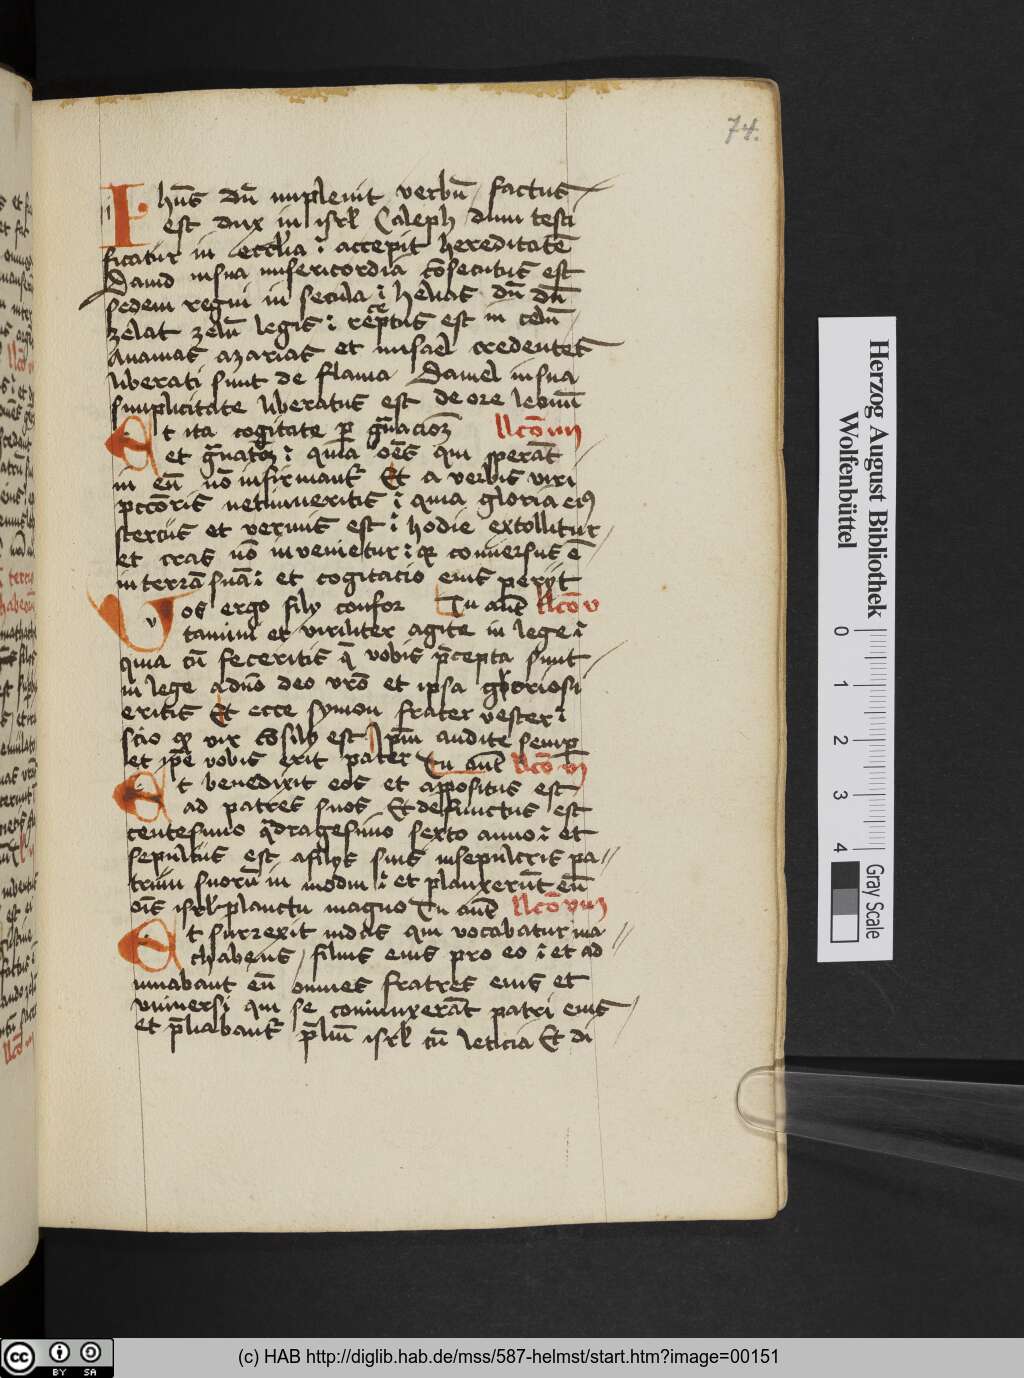 74.
Ihūs dū impleuit verbū factus
est dux in isrl Caleph dum testi
ficatur in eccl'ia ⁊ accepit hereditatē
Dauid in sua misericordia cōsecutus est
sedem regni in secula ⁊ helias dū dū
zelat zelū legis ⁊ receptus est in celū
Ananias azarias et misael credentes
liberati sunt de flama Daniel in sua
simplicitate liberatus est de ore leonū
Et ita cogitate per gn̄acionē llcō iiij
et gn̄atōnē ⁊ quia oēs qui sperāt
in eū nō infirmantur Et a verbis viri
peccōris ne timueritis ⁊ quia gloria eius
stercus et vermis est ⁊ hodie extollitur
et cras nō invenietur ⁊ quia conuersus ē
in terrā suā ⁊ et cogitacio eius perijt
Vos ergo filij confor Tu autē llcō v
tamini et viriliter agite in lege ⁊
quia cū feceritis q̄ vobis p̄cepta sunt
in lege a dn̄o deo vr̄o et ipsa gloriosi
eritis Et ecce symon frater vester ⁊
scio q vir cōsilij est Ip̄m audite semper
et ip̄e vobis erit pater Tu autē llcō vi
Et benedixit eos et appositus est
ad patres suos Et defunctus est
centesimo q̄dragesimo sexto anno ⁊ et
sepultus est a filijs suis in sepulcris pa
trum suorū in modin ⁊ et planxerūt eū
oīs isrl planctu magno Tu autē llcō viij
Et surrexit iudas qui vocabatur ma
chabeus filius eius pro eo ⁊ et ad
iuuabant eū omnes fratres eius et
vniuersi qui se coniunxerāt patri eius
et p̄liabantur p̄liū isrl cū leticia Et di
Herzog August Bibliothek
Wolfenbüttel
0 1 2 3 4
Gray Scale
cc BY SA
(c) HAB http://diglib.hab.de/mss/587-helmst/start.htm?image=00151